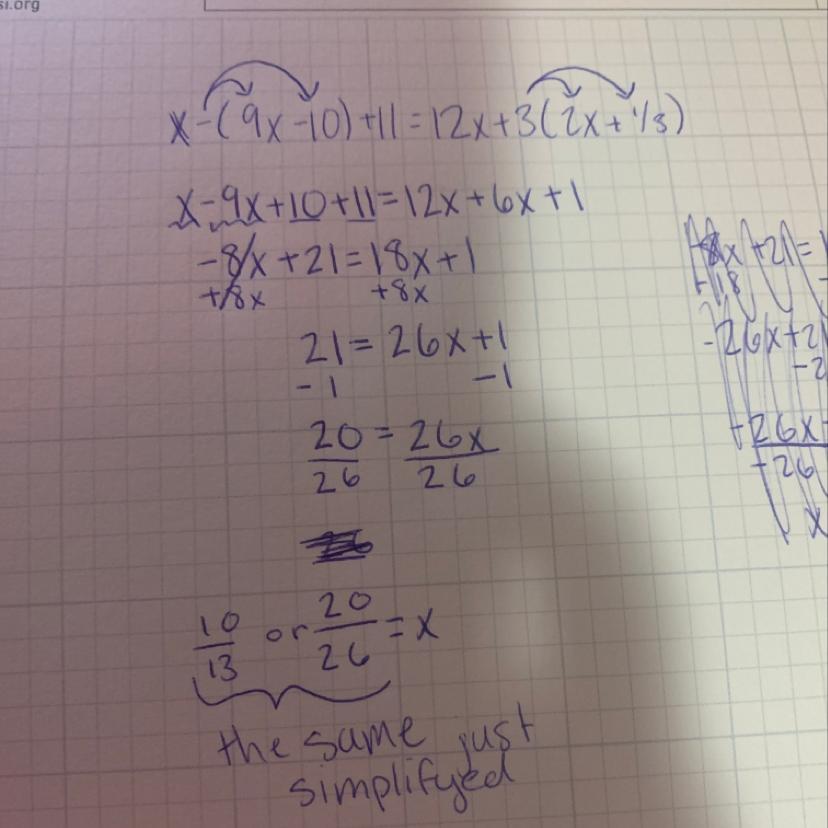 si.org
x-(9x-10)+11=12x+3(2x+1/3)
x-9x+10+11=12x+6x+1
-8x+21=18x+1
+8x +8x
21=26x+1
-1 -1
20 = 26x
26 26
10 or 20 = x
13 26
the same just
simplifyed
-8x+21=
-18
-26x+21
-2
-26x
-26
x